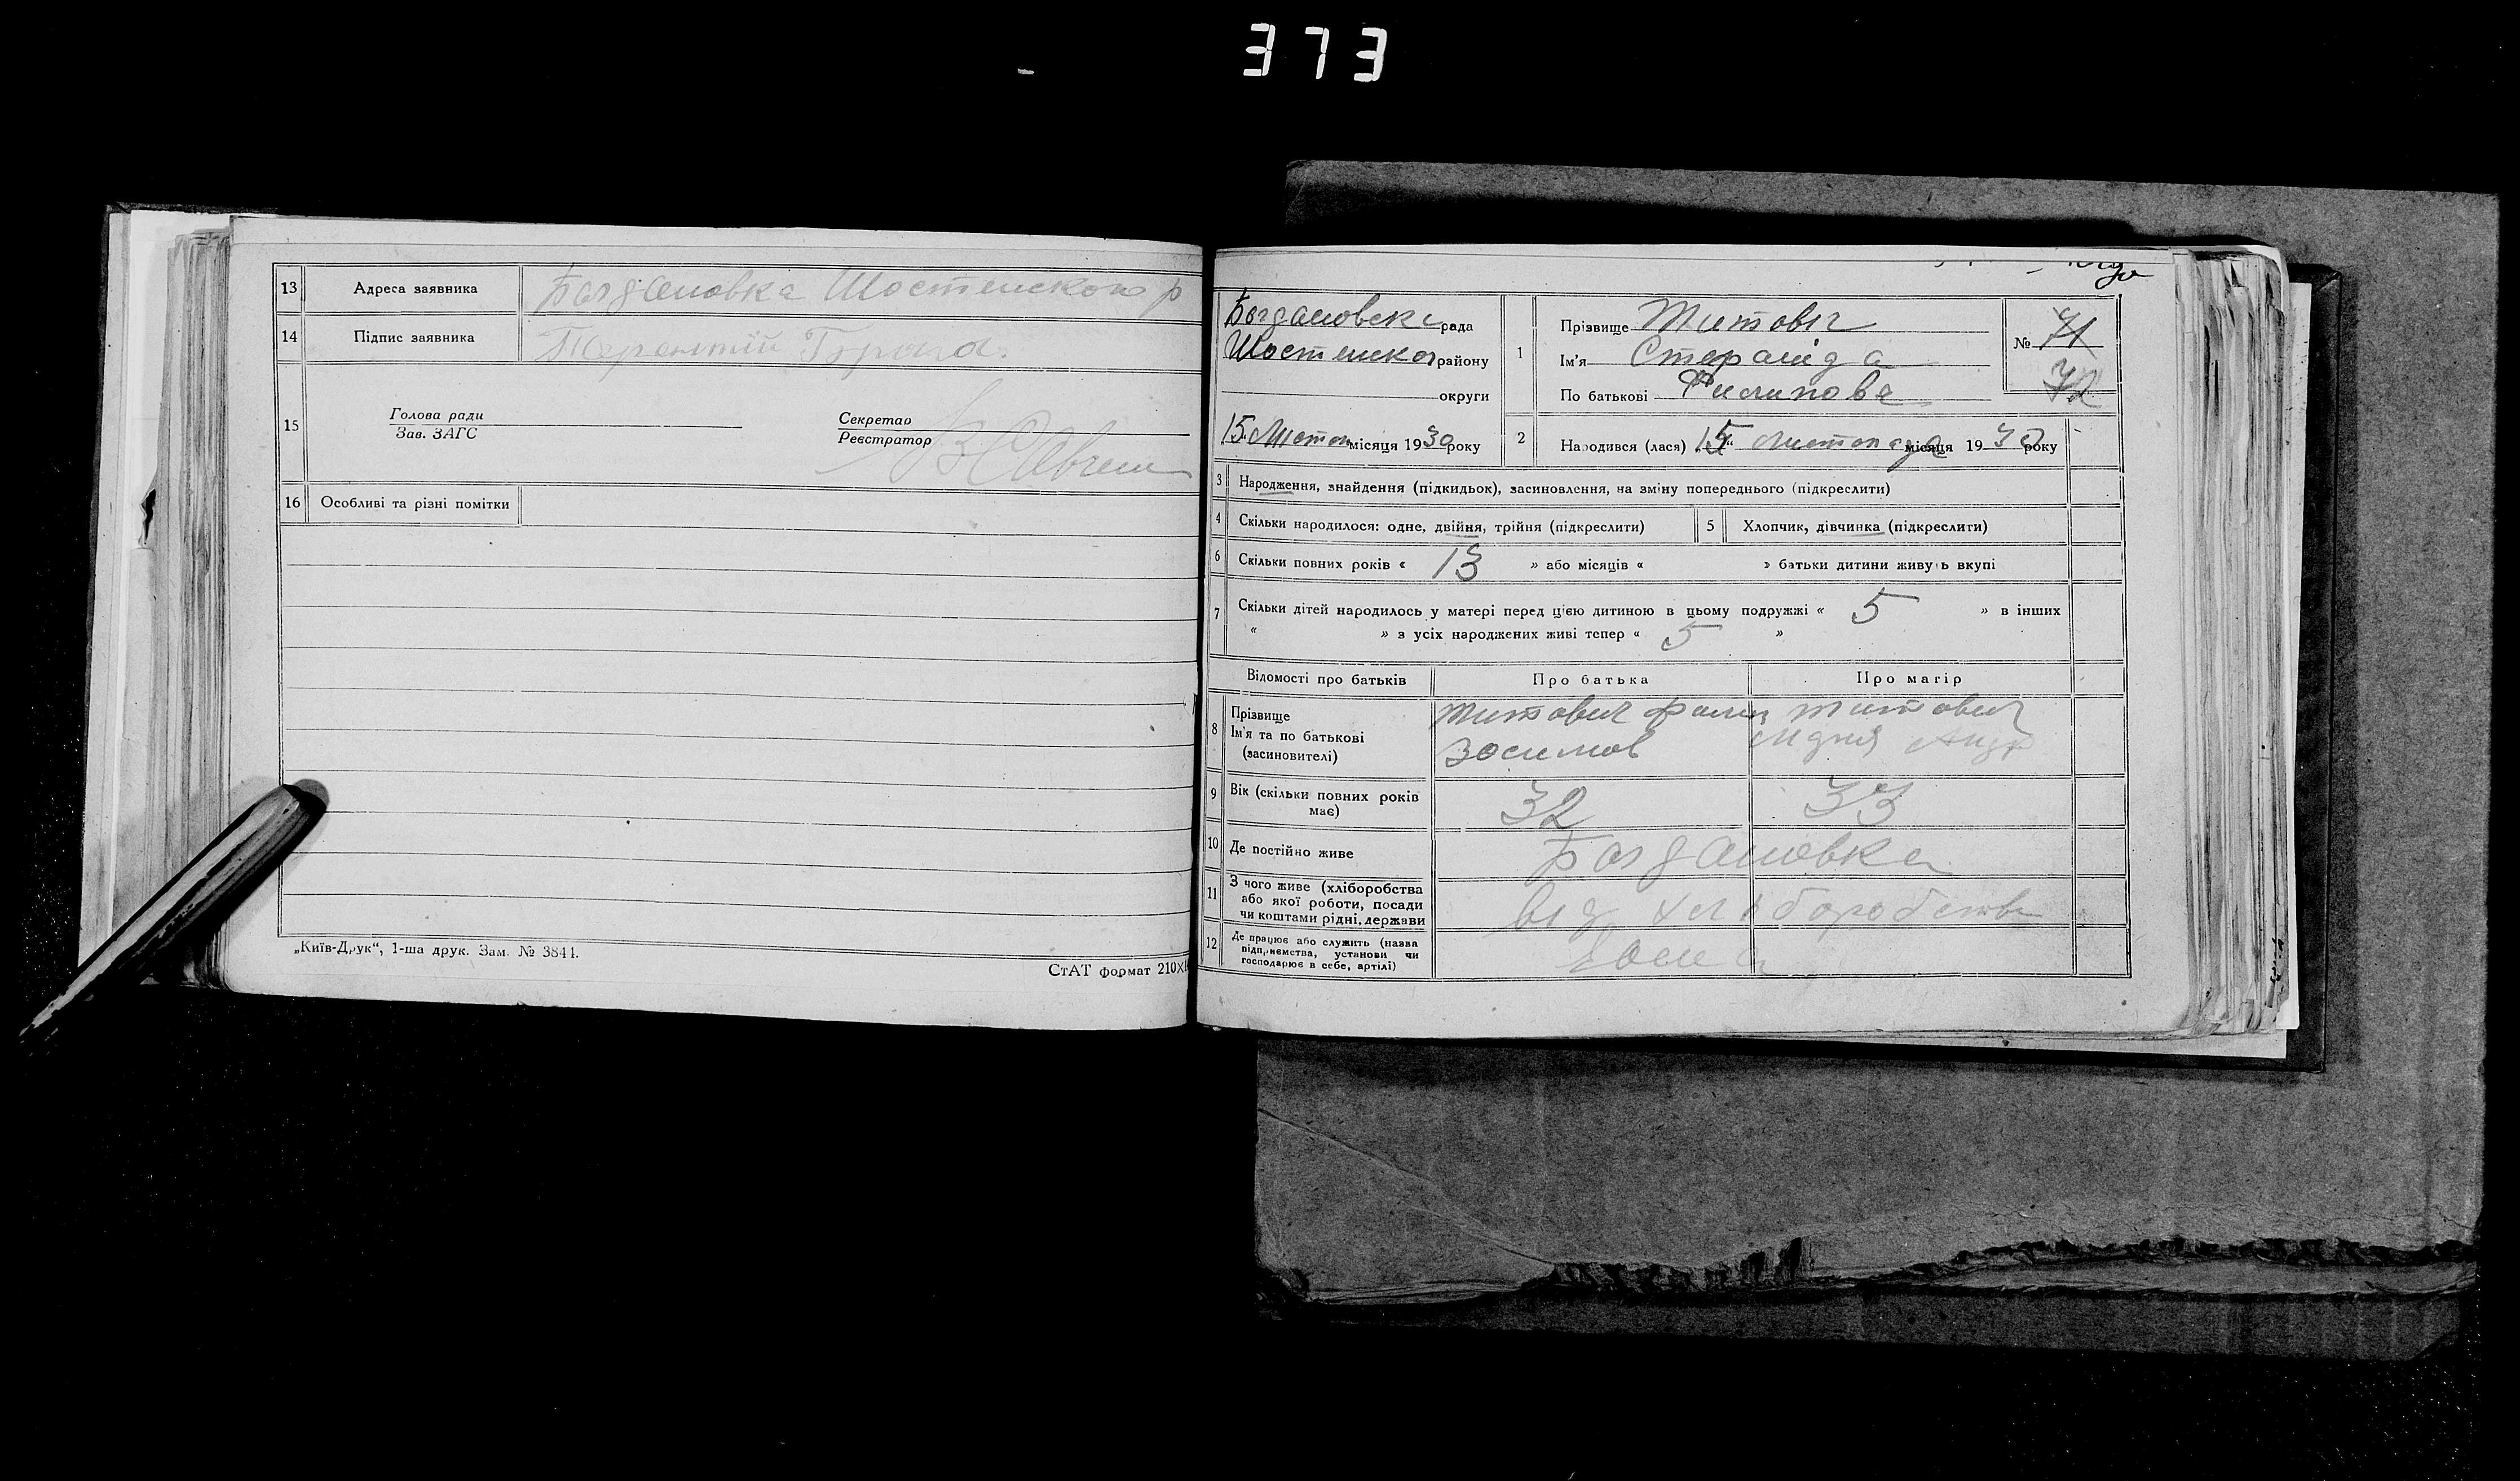 373
13 Адреса заявника Богдановка Шостенского р
14 Підпис заявника Терентій
15 Голова ради
Зав. ЗАГС
Секретар
Реєстратор
16 Особливі та різні помітки
„Київ-Друк“, 1-ша друк. Зам. № 3844.
СтАТ формат 210х
Богдановска рада
Шостенског району
округи
15 Листоп місяця 1930 року
1 Прізвище Титович
Ім'я Степанида
По батькові Филипова
№ 71
72
2 Народився (лася) „15“ Листопада місяця 1930 року
3 Народження, знайдення (підкидьок), засиновлення, на зміну попереднього (підкреслити)
4 Скільки народилося: одне, двійня, трійня (підкреслити) 5 Хлопчик, дівчинка (підкреслити)
6 Скільки повних років « 13 » або місяців « » батьки дитини живуть вкупі
7 Скільки дітей народилось у матері перед цією дитиною в цьому подружжі « 5 » в інших
« » з усіх народжених живі тепер « 5 »
Відомості про батьків Про батька Про матір
8 Прізвище
Ім'я та по батькові
(засиновителі)
Титович Филип
Зосимов
Титович
Андр
9 Вік (скільки повних років
має)
32 33
10 Де постійно живе Богдановка
11 З чого живе (хліборобства
або якої роботи, посади
чи коштами рідні, держави
від хліборобства
12 Де працює або служить (назва
підприємства, установи чи
господарює в себе, артілі)